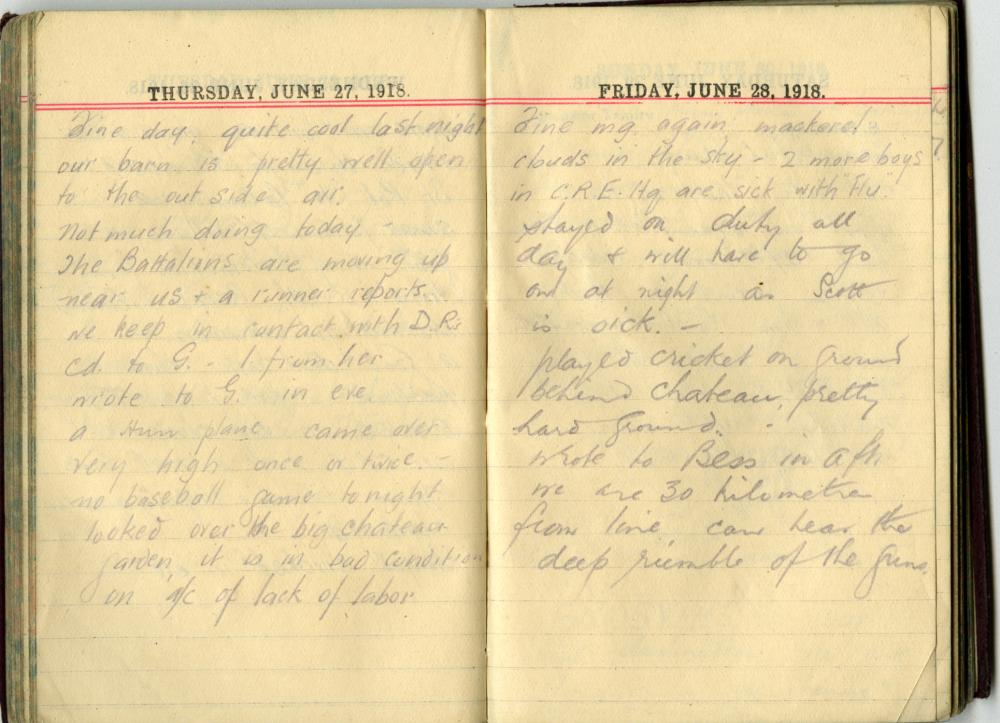 THURSDAY, JUNE 27, 1918.
Fine day, quite cool last night
our barn is pretty well open
to the out side air.
Not much doing today -
The Battalions are moving up
near us & a runner reports.
we keep in contact with D.R's
cd. to G. - 1 from her
wrote to G. in eve.
a Hun plane came over
very high once or twice. -
no baseball game tonight.
looked over the big chateau
garden it is in bad condition
on a/c of lack of labor
FRIDAY, JUNE 28, 1918.
Fine mg. again, mackerel
clouds in the sky - 2 more boys
in C.R.E. Hq are sick with "Flu".
stayed on duty all
day & will have to go
on at night as Scott
is sick. -
played cricket on ground
behind chateau, pretty
hard ground. -
Wrote to Bess in aft.
we are 30 kilometre
from line can hear the
deep rumble of the guns.